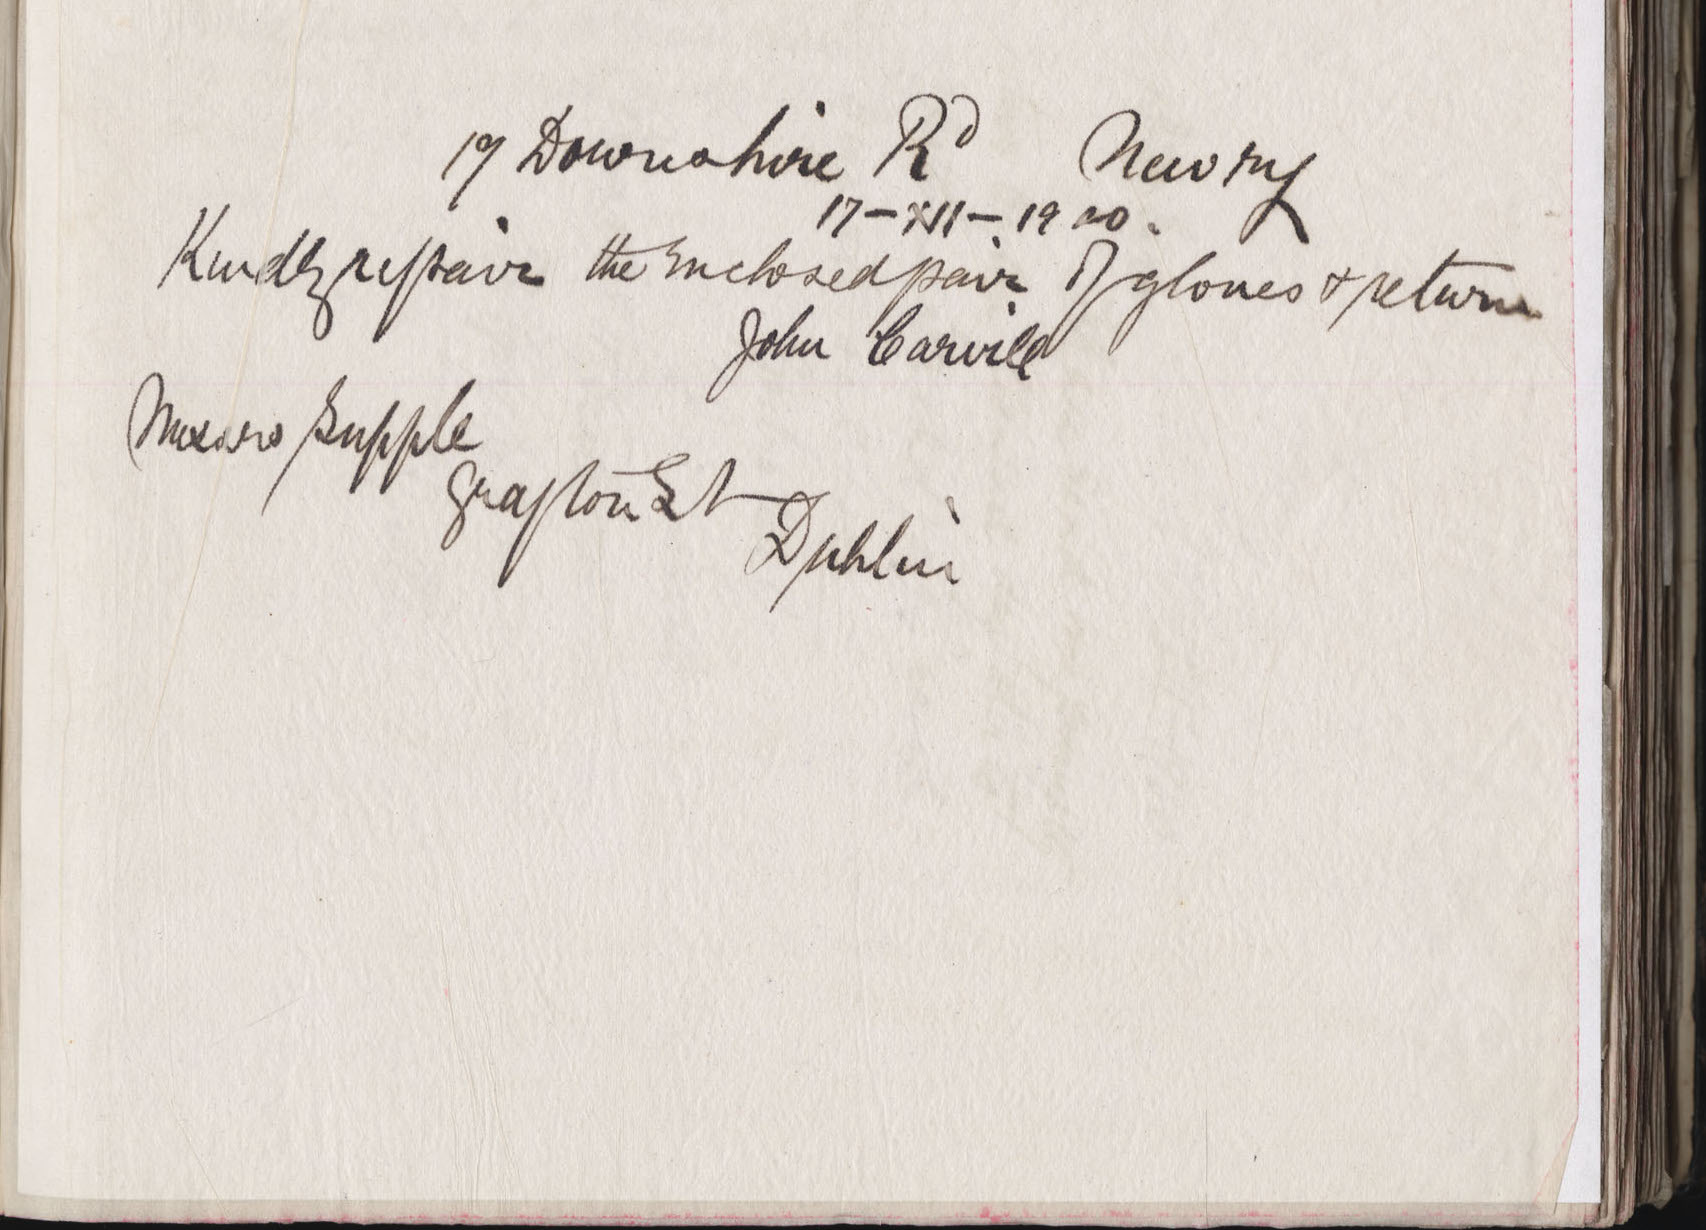 17 Downshire Rd Newry
17-XII-1920.
Kindly repair the enclosed pair of gloves & return
John Carvill
Messrs Supple
Grafton St
Dublin